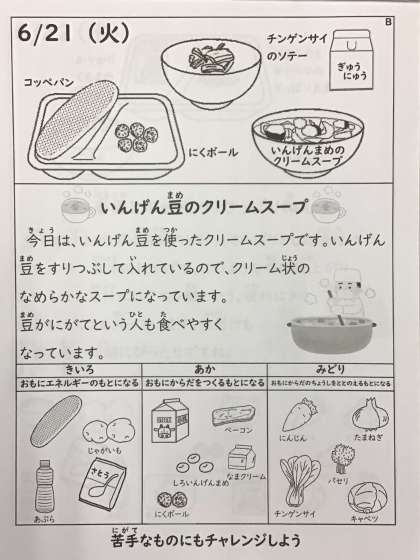 B
6/21（火）
チンゲンサイ
のソテー
ぎゅう
にゅう
コッペパン
にくボール
いんげんまめの
クリームスープ
いんげん豆のクリームスープ
まめ
きょう
まめ
つか
今日は、いんげん豆を使ったクリームスープです。いんげん
まめ
い
じょう
豆をすりつぶして入れているので、クリーム状の
なめらかなスープになっています。
まめ
ひと
た
豆がにがてという人も食べやすく
なっています。
きいろ
あか
みどり
おもにエネルギーのもとになる
おもにからだをつくるもとになる
おもにからだのちょうしをととのえるもとになる
じゃがいも
さとう
あぶら
ベーコン
しろいんげんまめ
なまクリーム
にくボール
にんじん
たまねぎ
パセリ
チンゲンサイ
キャベツ
にがて
苦手なものにもチャレンジしよう